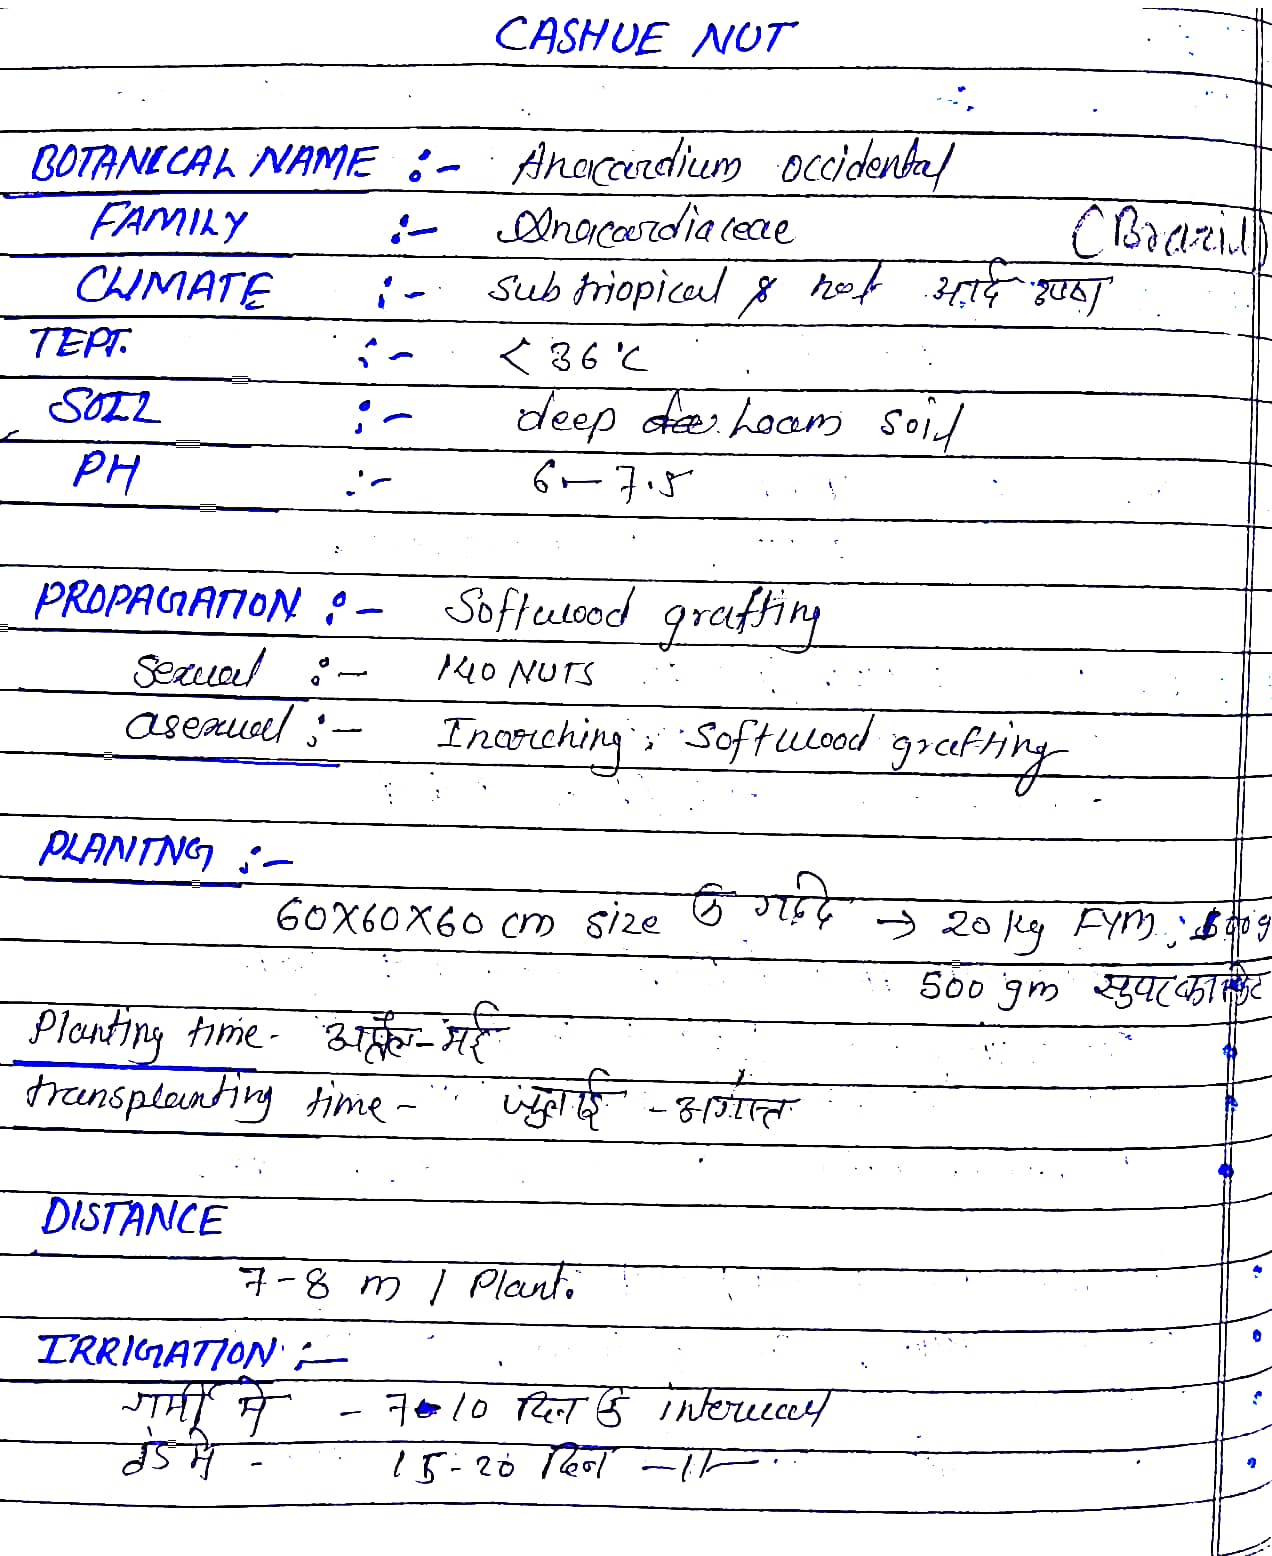 CASHUE NUT
BOTANICAL NAME :- Anacardium occidental
FAMILY :- Anacardiaceae (Brazil)
CLIMATE :- Subtriopical & hot आर्द उष्ण
TEPT. :- < 36°C
SOIL :- deep Loam soil
PH :- 6-7.5
PROPAGATION :- Softwood grafting
Sexual :- 140 NUTS
asexual :- Inarching, Softwood grafting
PLANTNG :-
60X60X60 cm size के गड्ढे → 20 kg FYM,
500 gm सुपरफास्फेट
Planting time - अप्रैल-मई
transplanting time - जुलाई - अगस्त
DISTANCE
7-8 m / Plant.
IRRIGATION :-
गर्मी मे - 7-10 दिन के interval
ठंड मे - 15-20 दिन -11-